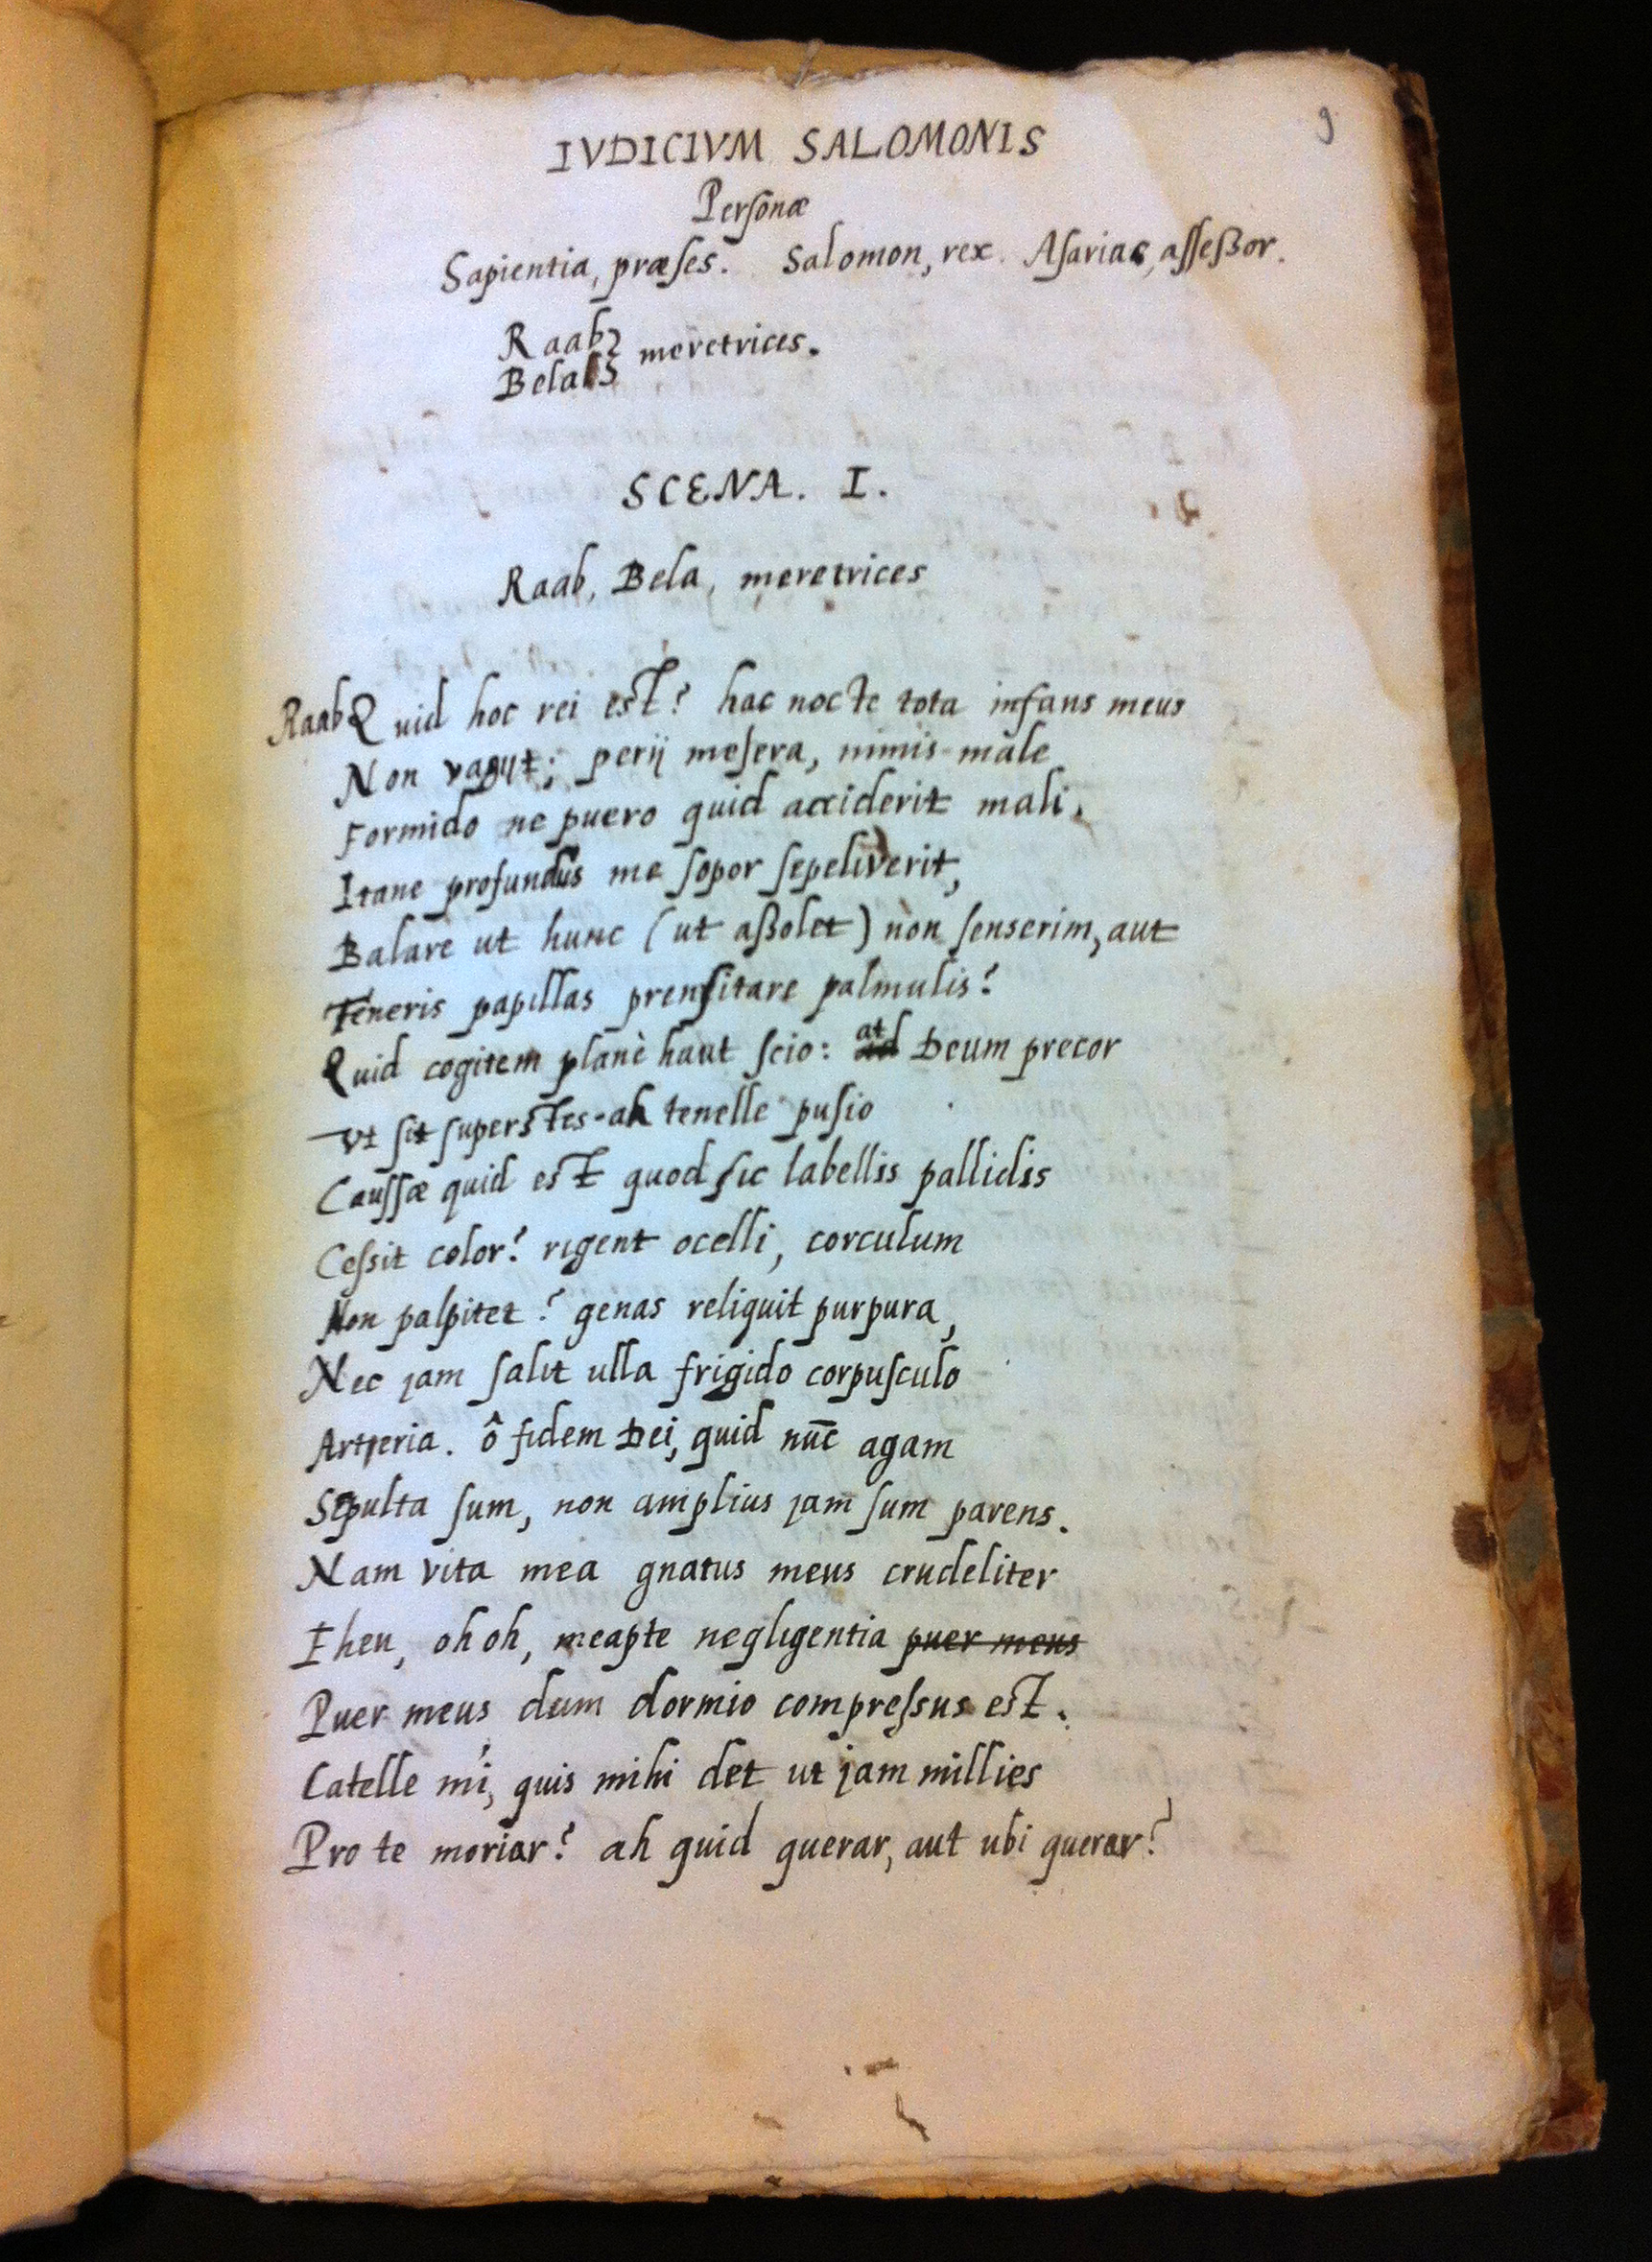 9
IVDICIVM SALOMONIS
Personæ
Sapientia, præses. Salomon, rex. Asarias, assessor.
Raab
Bela } meretrices.
SCENA. I.
Raab, Bela, meretrices
Raab Quid hoc rei est? hac nocte tota infans meus
Non vagijt; perij mesera, nimis male
Formido ne puero quid acciderit mali.
Itane profundus me sopor sepeliverit,
Balare ut hunc (ut assolet) non senserim, aut
Teneris papillas prensitare palmulis?
Quid cogitem planè haut scio: at Deum precor
Vt sit superstes - ah tenelle pusio
Caussæ quid est quod sic labellis pallidis
Cessit color? rigent ocelli, corculum
Non palpitet? genas reliquit purpura,
Nec jam salit ulla frigido corpusculo
Arteria. ô fidem Dei, quid nūc agam
Sepulta sum, non amplius jam sum parens.
Nam vita mea gnatus meus crudeliter
Eheu, oh oh, meapte negligentia puer meus
Puer meus dum dormio compressus est.
Catelle mi, quis mihi det ut jam millies
Pro te moriar? ah quid querar, aut ubi querar?